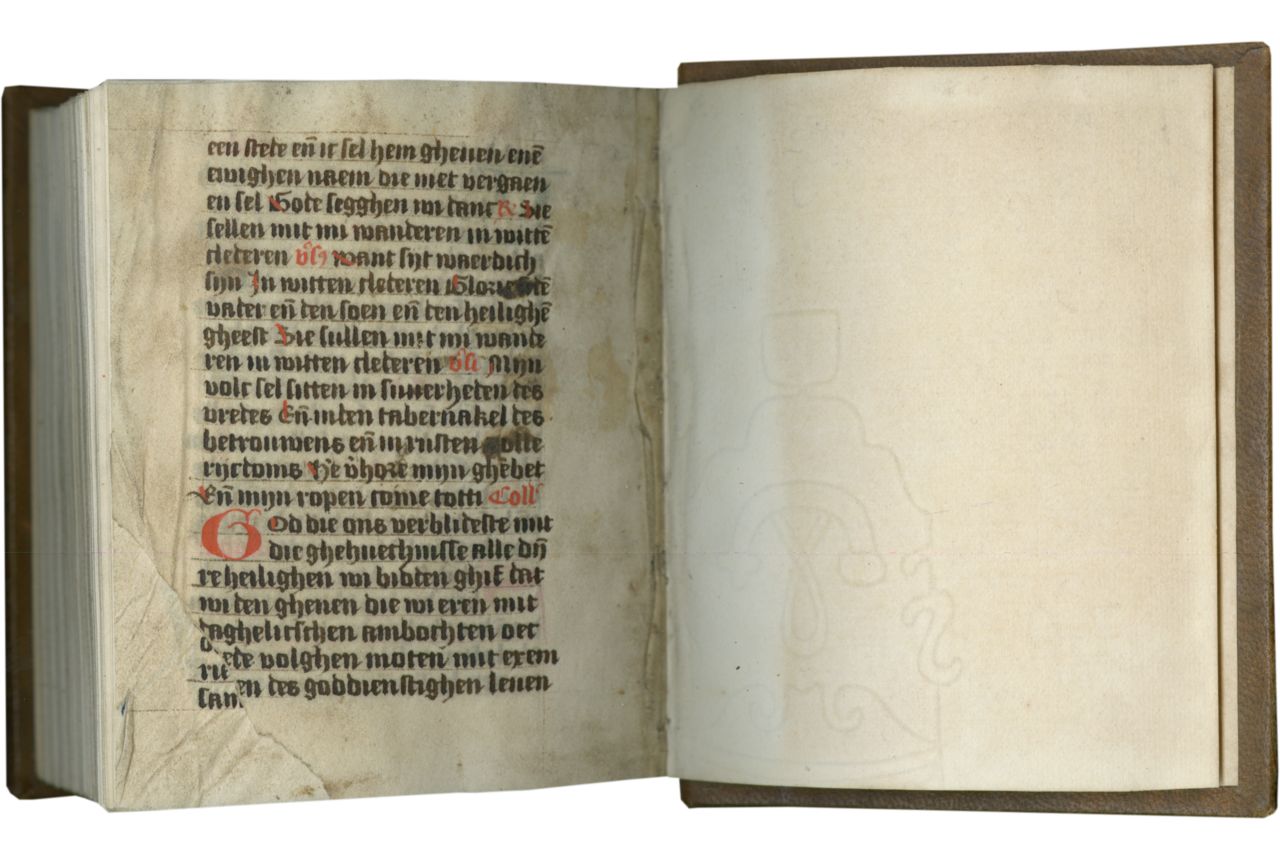 een stede en̄ ic sel hem gheuen enē
ewighen naem die niet vergaen
en sel Gode segghen wi danc R Sie
sellen mit mi wanderen in wittē
clederen v̓s want sijt waerdich
sijn In witten clederen Glorie dē
vader en̄ den soen en̄ den heilighē
gheest Sie sullen mit mi wande
ren in witten clederen v̓s Mijn
volc sel sitten in des
vredes En̄ in den tabernakel des
betrouwens en̄ in rusten volre
rijcdoms He v̓hore mijn ghebet
En̄ mijn ropen come totti Coll'
GOd die ons verblideste mit
die ghehuechnisse alle dijn̄
re heilighen wi bidden ghif dat
wi den ghenen die wi eren mit
daghelicschen ambochten oec
volghen moten mit exem
en des goddienstighen leuen